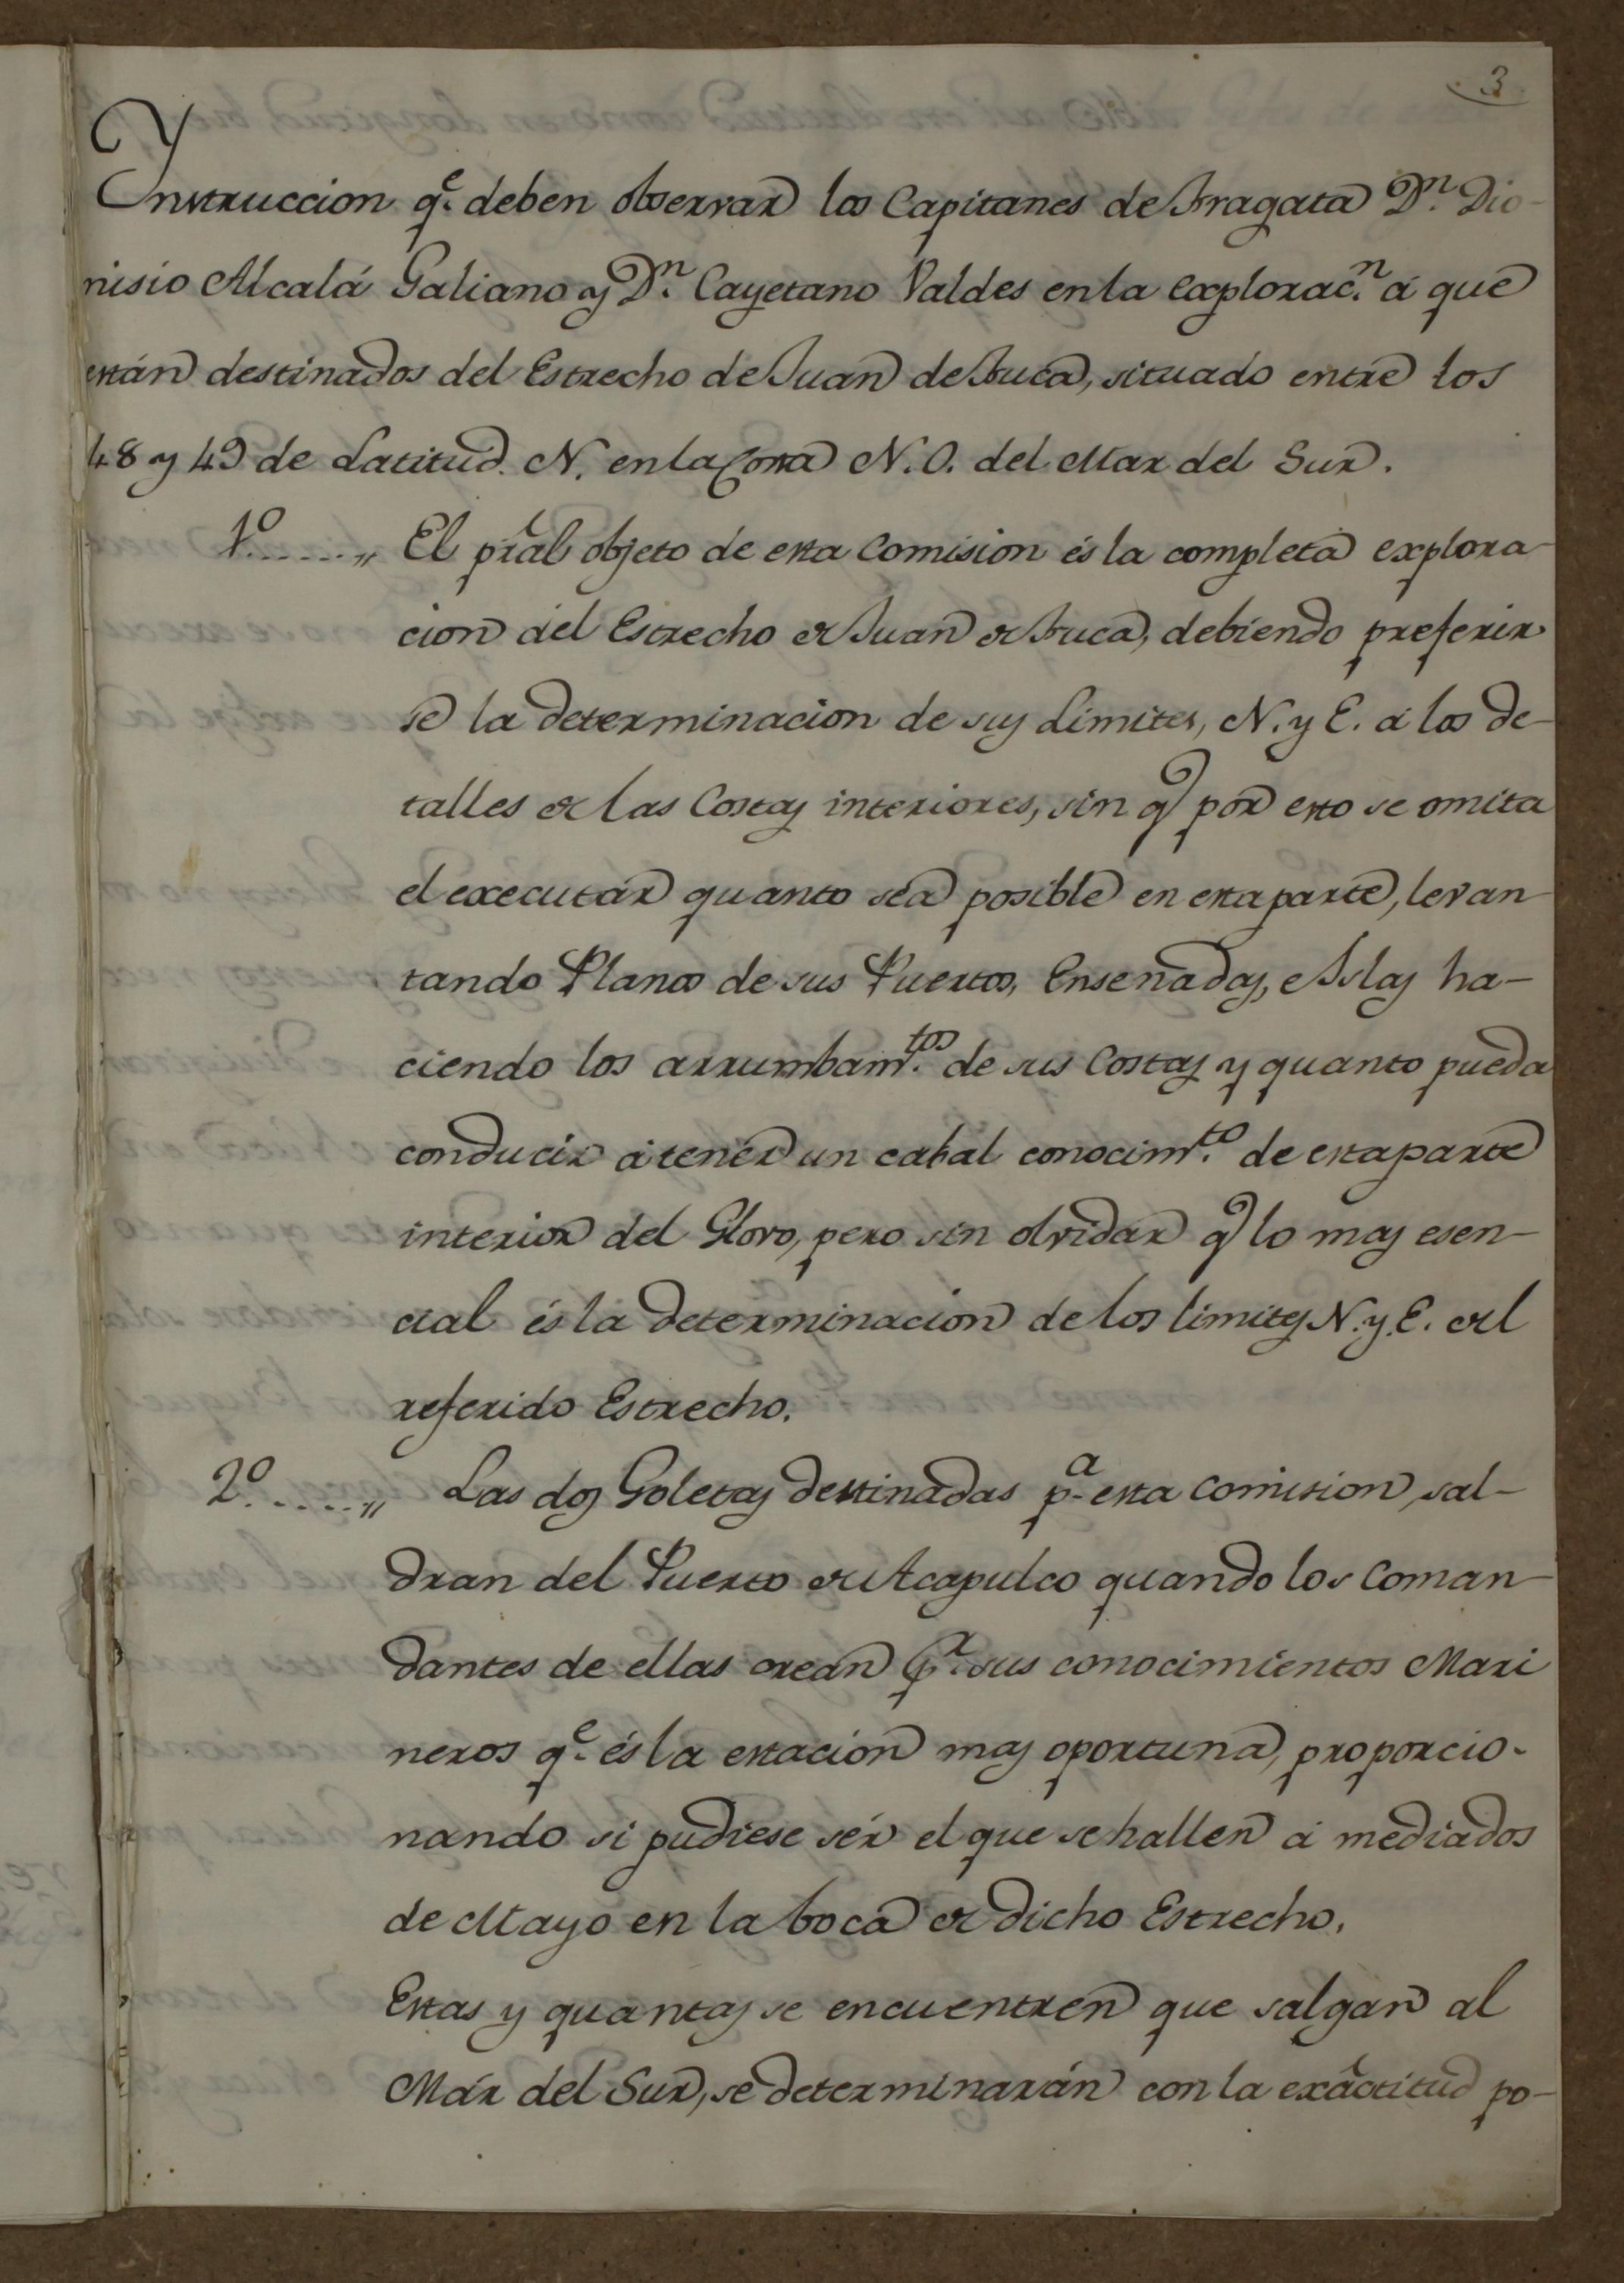 3
Ynstruccion q.e deben observar los Capitanes de Fragata D.n Dio-
nisio Alcalá Galiano y D.n Cayetano Valdes en la explorac.n á que
están destinados del Estrecho de Juan de Fuca, situado entre los
48 y 49 de Latitud. N. en la Costa N.O. del Mar del Sur.
1.o.....,, El pral objeto de esta Comision és la completa explora-
cion del Estrecho de Juan de Fuca, debiendo preferir-
se la determinacion de sus Limites, N. y E. á los de-
talles de las Costas interiores, sin q por esto se omita
el executár quanto séa posible en esta parte, levan-
tando Planos de sus Puertos, Ensenadas, é Yslas ha-
ciendo los arrumbam.tos de sus Costas y quanto pueda
conducir á tenér un cabal conocim.to de esta parte
interior del Globo, pero sin olvidar q lo mas esen-
cial és la determinacion de los limites N. y E. del
referido Estrecho.
2.o.....,, Las dos Goletas destinadas p.a esta Comision, sal-
dran del Puerto de Acapulco quando los Coman-
dantes de ellas crean p.r sus conocimientos Mari
neros q.e és la estacion mas oportuna, proporcio-
nando si pudiese sér el que se hallen á mediados
de Mayo en la boca de dicho Estrecho.
Estas y quantas se encuentren que salgan al
Már del Sur, se determinarán con la exâctitud po-